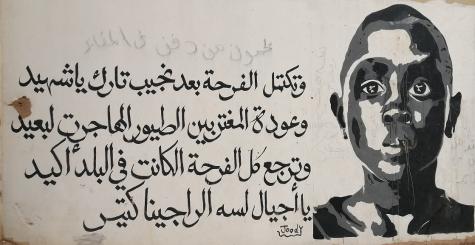 وتكتمل الفرحة بعد نجيب تارك يا شهيد
وعودة المغتربين الطيور الهاجرت لبعيد
وترجع كل الفرحة الكانت في البلد أكيد
يا أجيال لسه الراجينا كتير
Joody